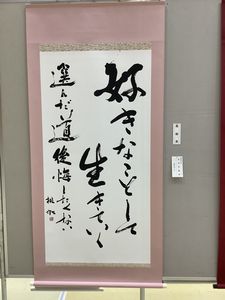 好きなことして
生きていく
選んだ道後悔したくない